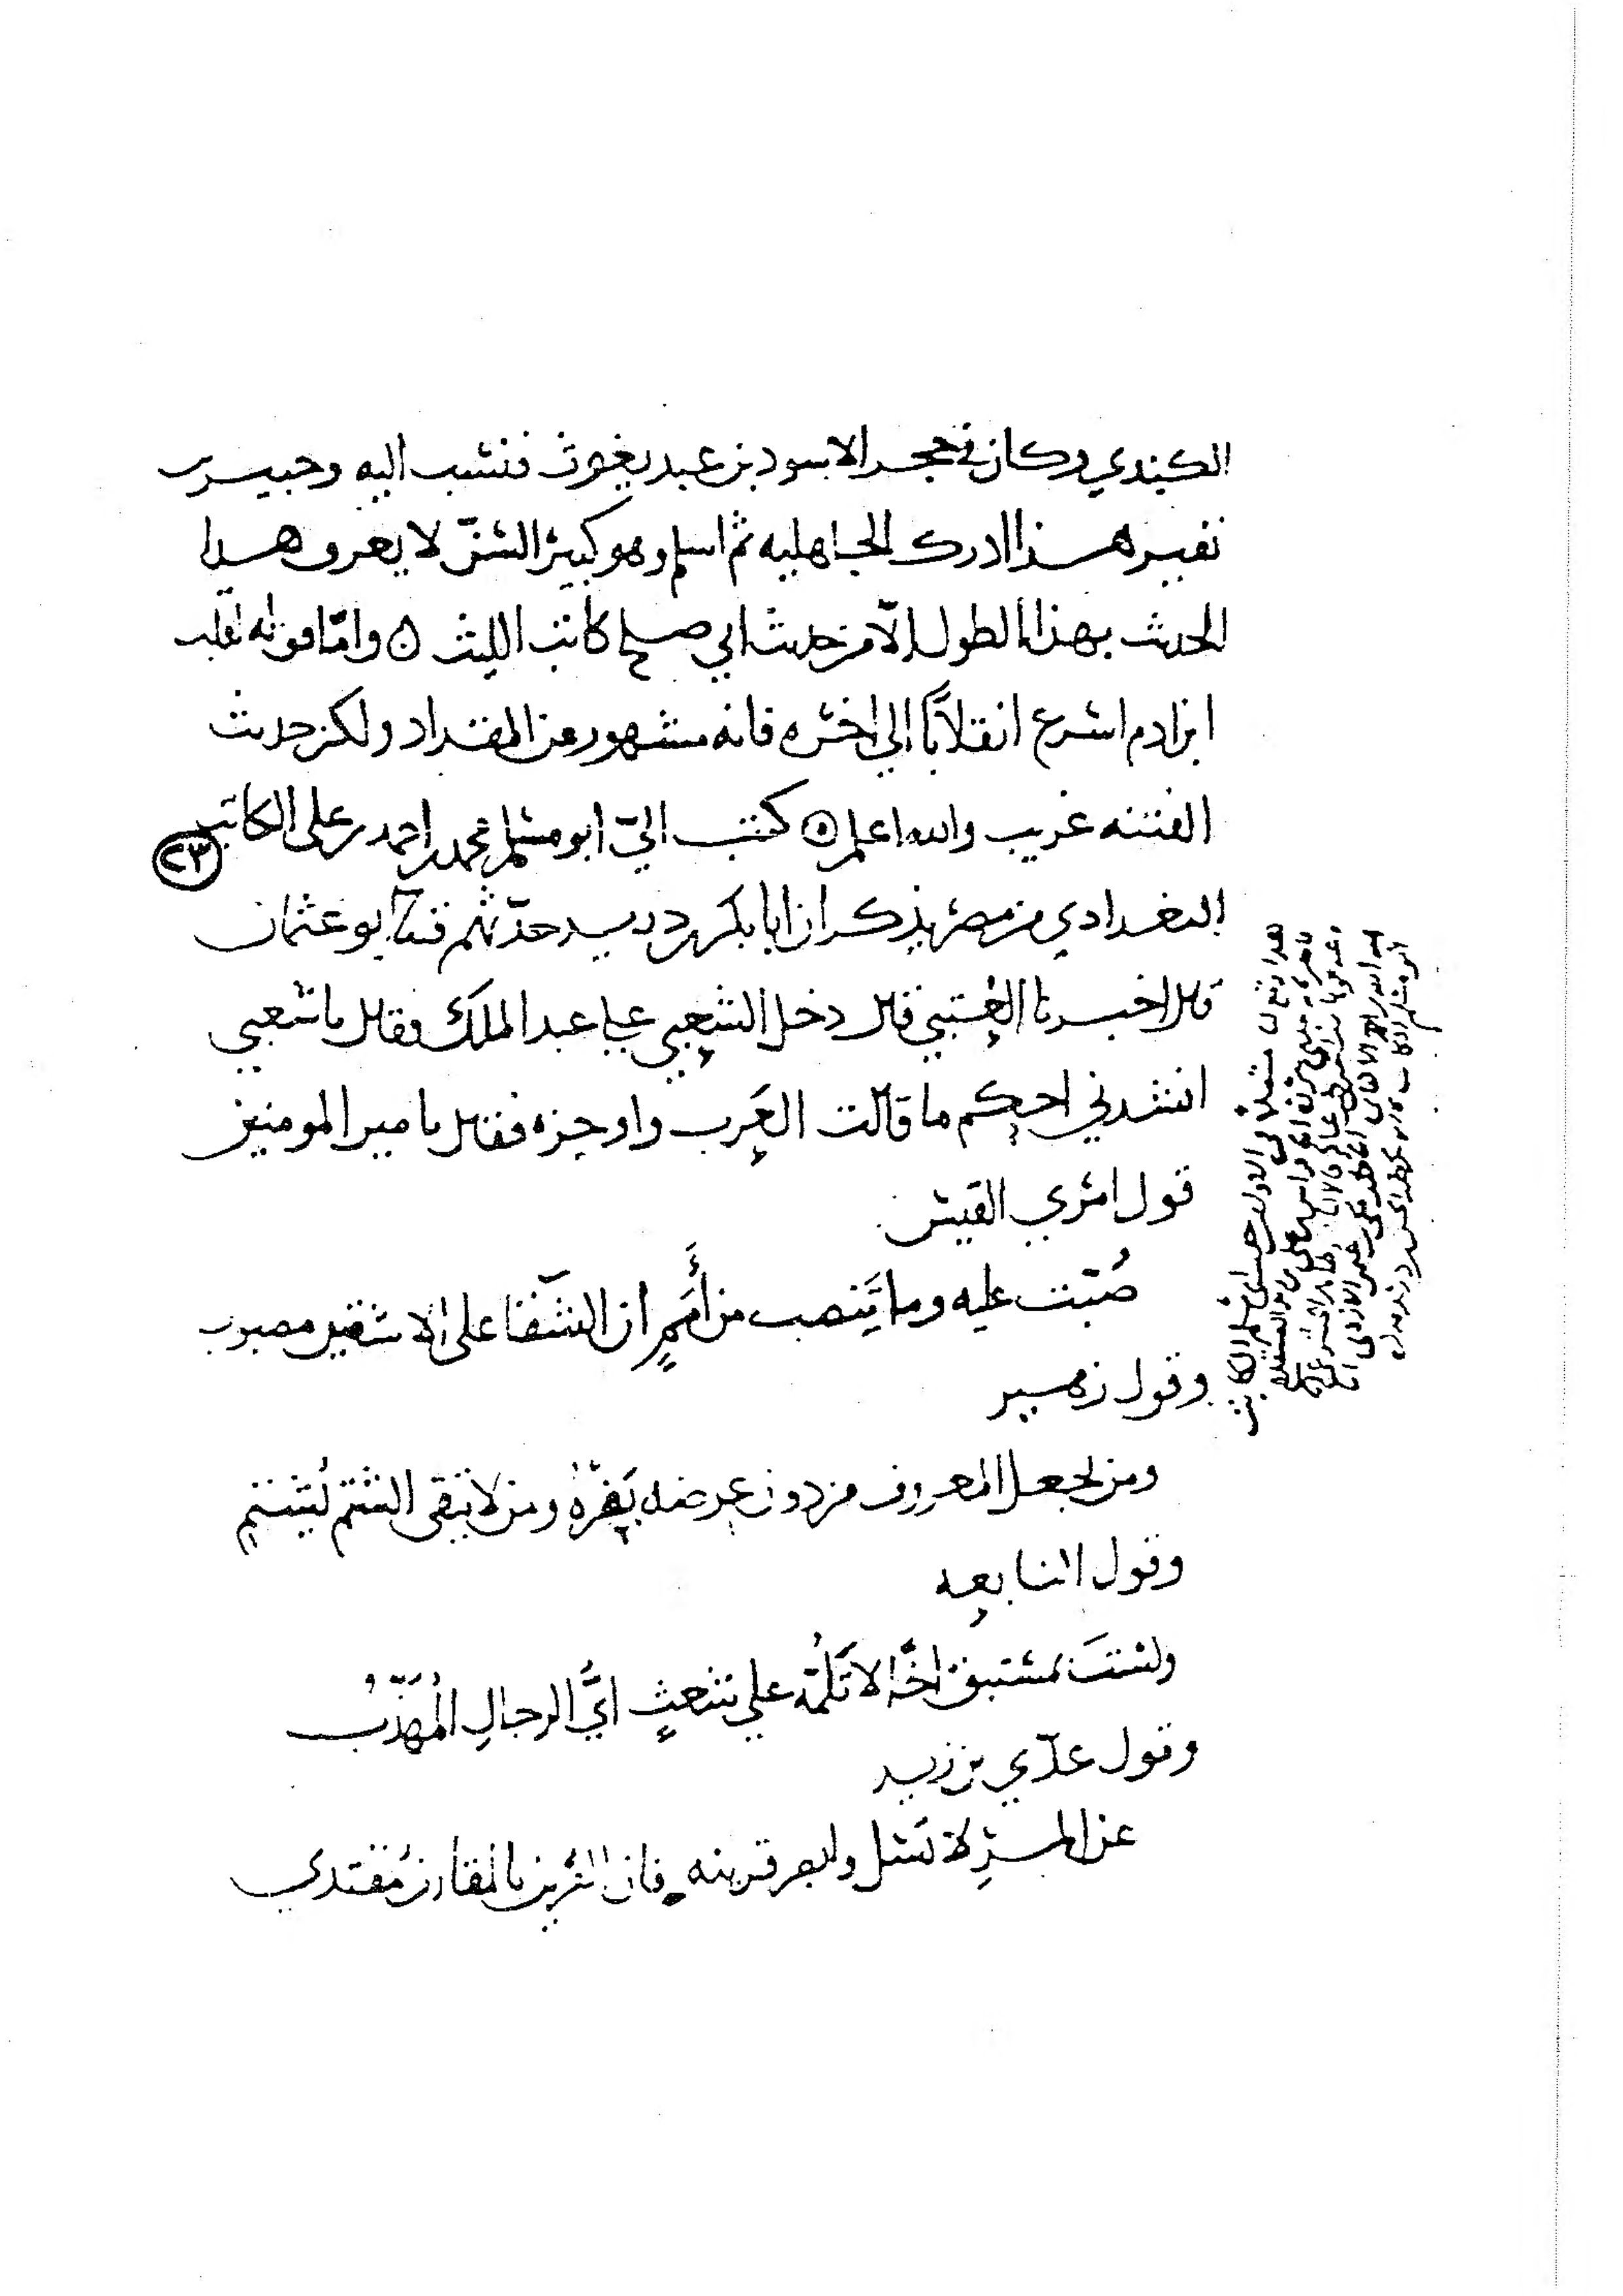 الكندي وكان في حجر الاسود بن عبد يغوث فنسب اليه وجبير بن
نفير هذا ادرك الجاهليه ثم اسلم وهو كبير السن لا يعرف هذا
الحديث بهذا الطول الّا من حديث ابي صلح كاتب الليث ه وامّا قوله لقلب
ابن ادم اسرع انقلابًا الى اخره فانه مشهور عن المقداد ولكن حديث
الفتنه غريب والله اعلم ه كتب اليّ ابو مسلم محمد بن احمد بن على الكاتب
٢٣
البغدادي من مصر يذكر ان ابا بكر بن دريد حدّثهم قثنا ابو عثمان
قال اخبرنا العتبي قال دخل الشعبي على عبد الملك فقال يا شعبي
انشدني احكم ما قالت العَرب واوجزه فقال يا مير المومنين
قول امرئ القيس
صُبّت عليه وما ينصب من أَمَمٍ ان الشقا على الاشقين مصبوب
وقول زهير
ومن يجعل المعروف من دون عرضه يَفِرْهُ ومن لا يتقى الشتم يُشتم
وقول النابعه
ولستَ بمستبق اخًا لا تَلُمّه على شعثٍ ايُّ الرجالِ المُهَذّبُ
وقول عدّي بن زيد
عن المرءِ لا تَسَل وابصر قرينه فان القرين بالمقارن مُقتدي
هذا وقع لى متصلا فى الاول من حديث ابى مسلم الكاتب